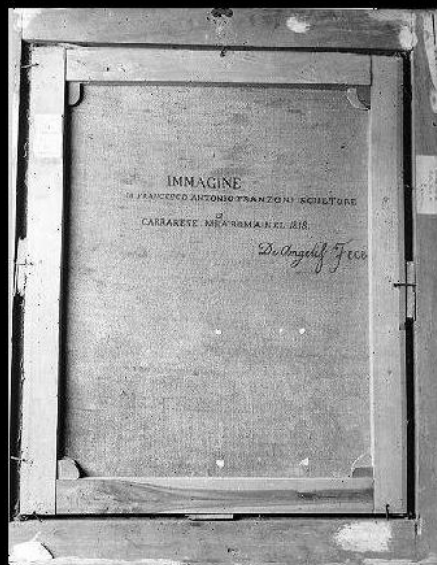 IMMAGINE
DI FRANCESCO ANTONIO FRANZONI SCULTORE
CARRARESE. M. A ROMA NEL 1818.
De Angelis Fece